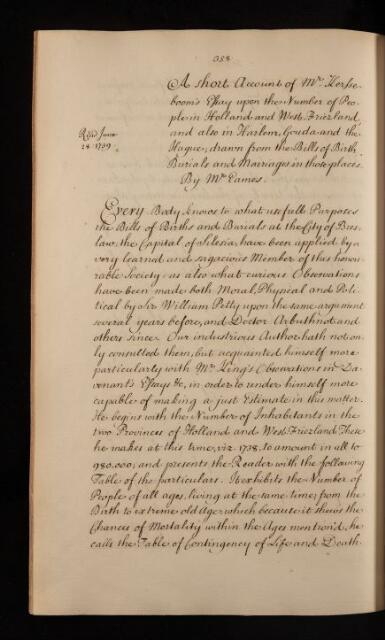 358
A short Account of Mr. Kersse-
boom's Essay upon the Number of Peo-
ple in Holland and West-Friezland,
Read June
28. 1739.
and also in Harlem, Gouda and the
Hague, drawn from the Bills of Birth,
Burials and Marriages in those places.
By Mr. Eames.
Every Body knows to what usefull Purposes
the Bills of Births and Burials at the City of Bres-
law, the Capital of Silesia, have been applied by a
very learned and sagacious Member of this honou-
rable Society: as also what curious Observations
have been made both Moral, Physical and Poli-
tical by Sir William Petty upon the same argument
several years before, and Doctor Arbuthnot and
others since. Our industrious Author hath not on-
ly consulted them, but acquainted himself more
particularly with Mr. King's Observations in Da-
venant's Essays &c, in order to render himself more
capable of making a just Estimate in this matter.
He begins with the Number of Inhabitants in the
two Provinces of Holland and West-Friezland. These
he makes at this time, viz. 1738. to amount in all to
980.000; and presents the Reader with the following
Table of the particulars. It exhibits the Number of
People of all ages, living at the same time, from the
Birth to extreme old Age; which because it shews the
Chances of Mortality within the Ages mention'd, he
calls the Table of Contingency of Life and Death.